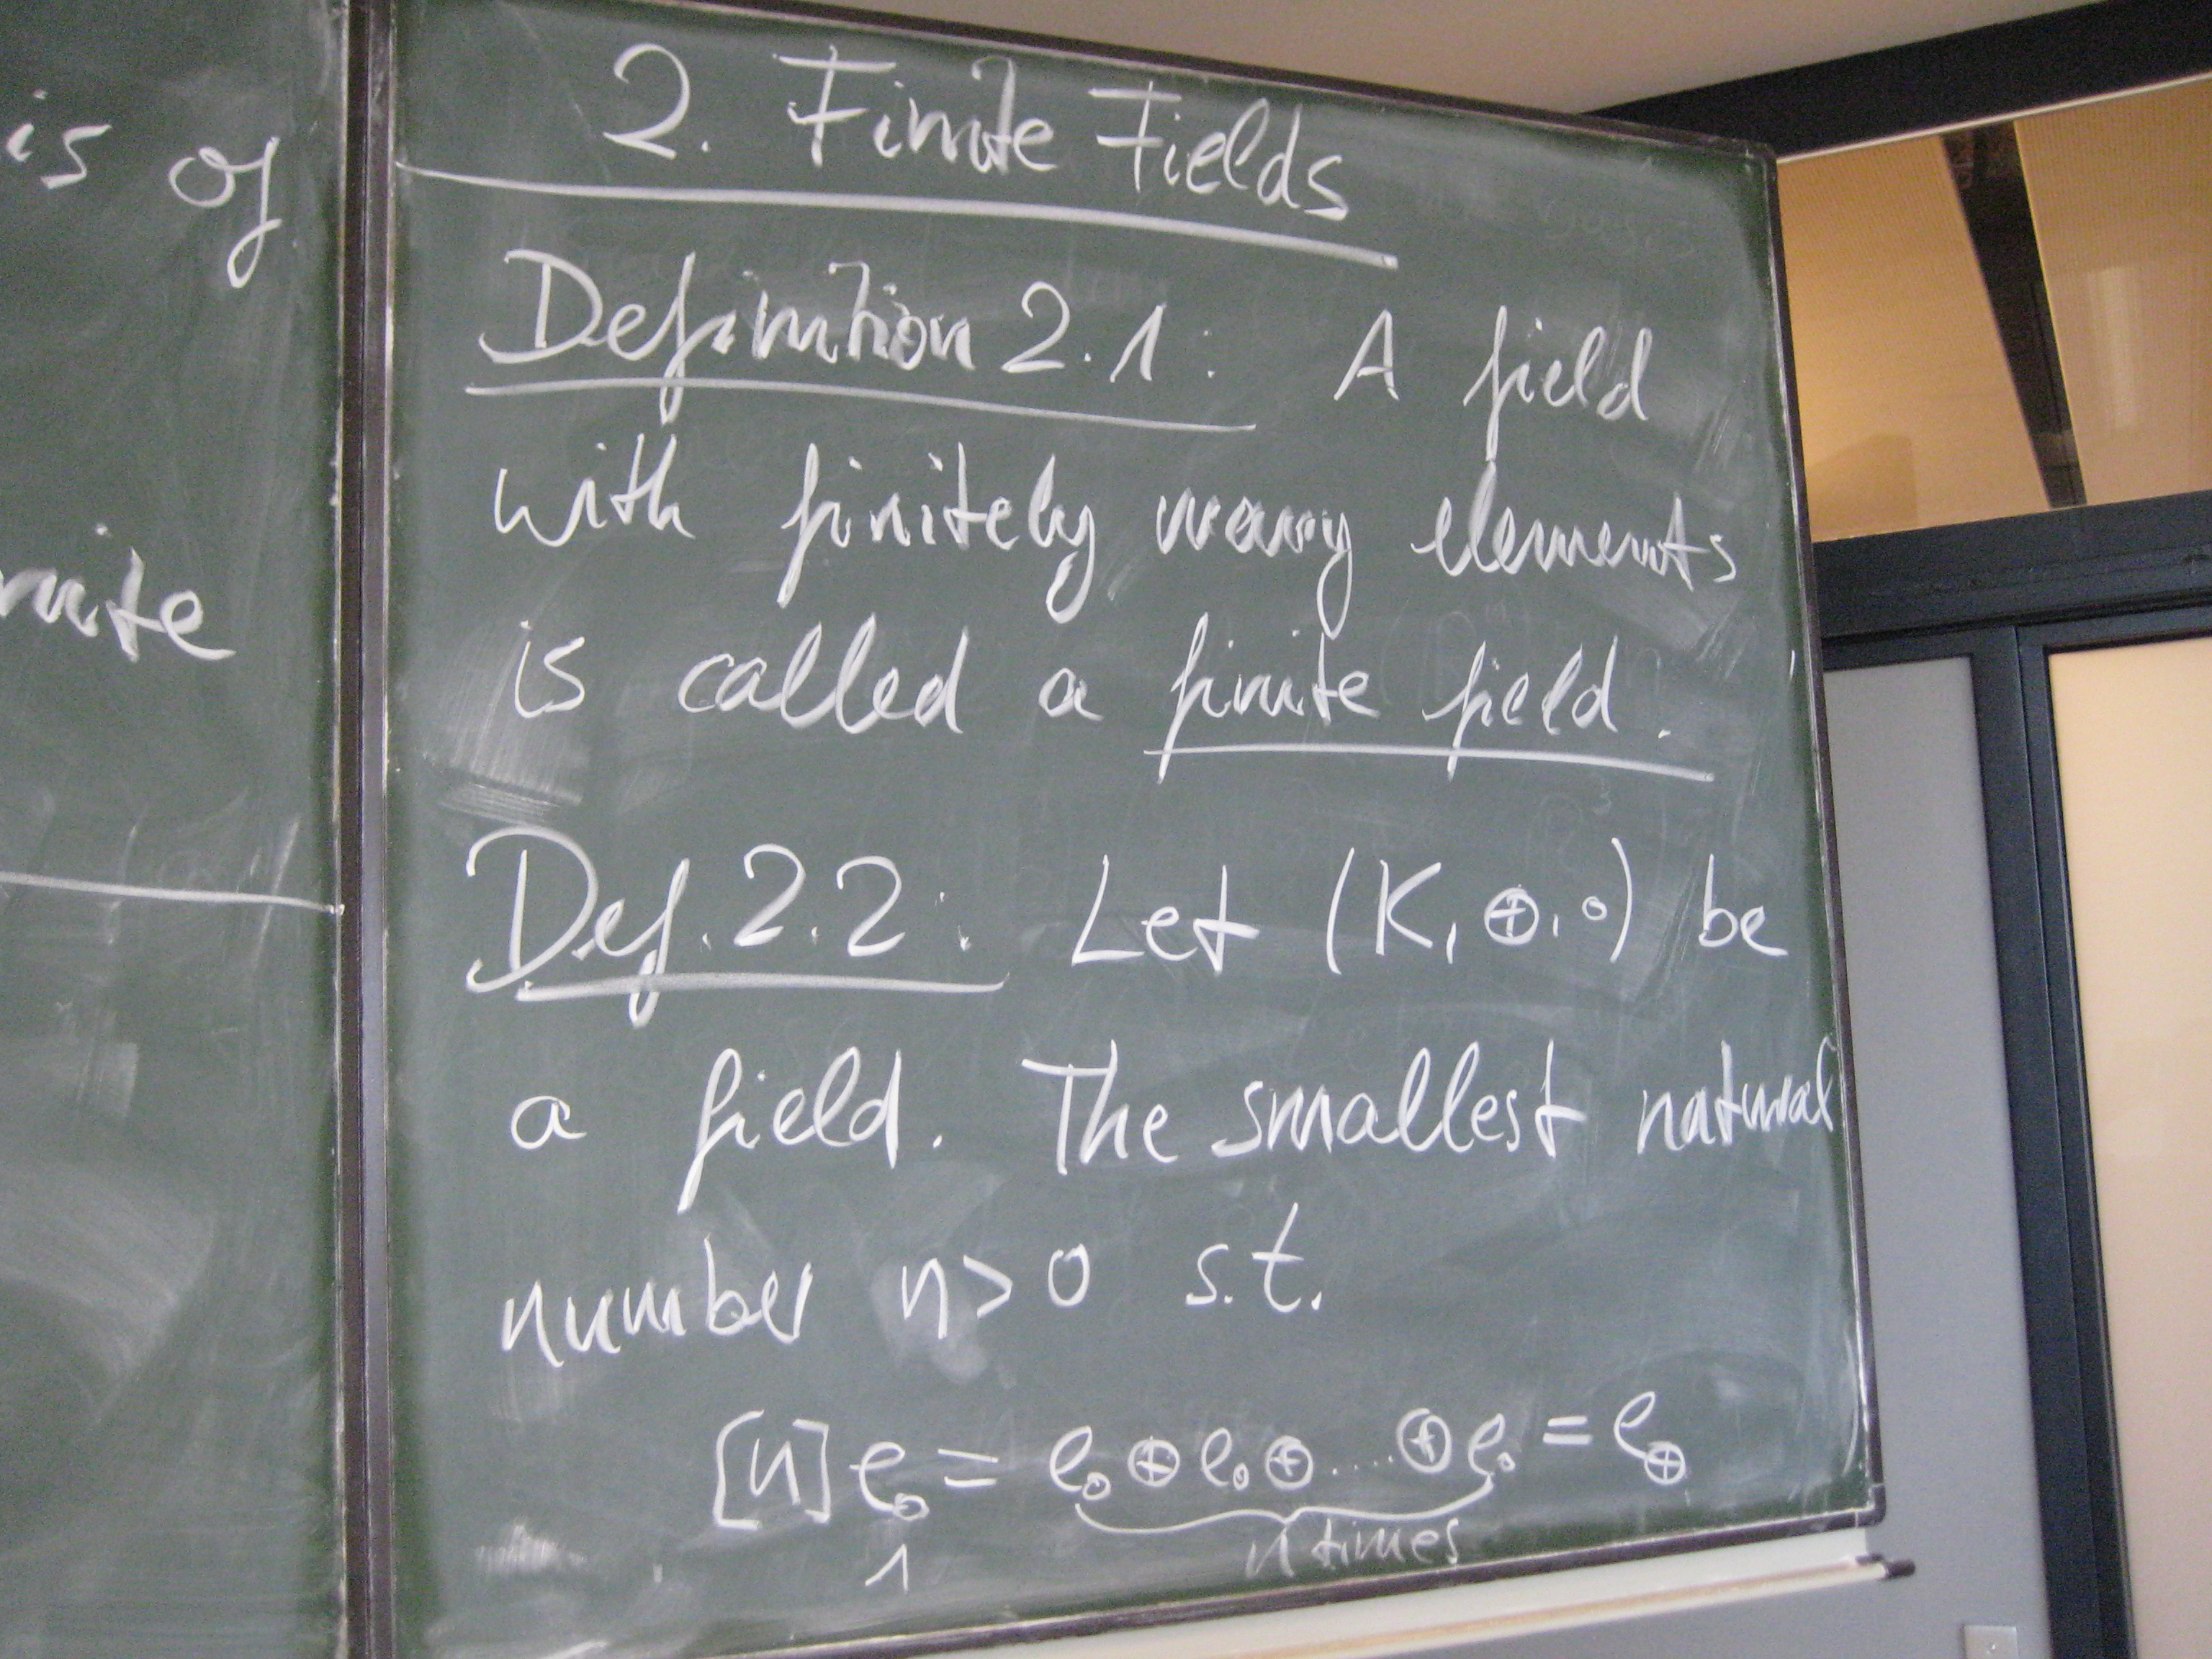 is of
nite
2. Finite Fields
Definition 2.1: A field
with finitely many elements
is called a finite field.
Def. 2.2: Let (K, ⊕, ∘) be
a field. The smallest natural
number n > 0 s.t.
[n] e∘ = e∘ ⊕ e∘ ⊕ .... ⊕ e∘ = e⊕
1
n times